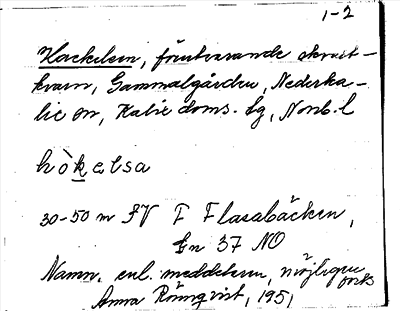 1-2
Hackelsen, förutvarande skvalt-
kvarn, Gammalgården, Nederka-
lix sn, Kalix doms. tg, Norrb. l
hòkelsa
30-50 m SV F Flasabäcken,
Gn 37 NO
Namn. enl. meddelaren, möjligen
Anna Rönnqvist, 1951